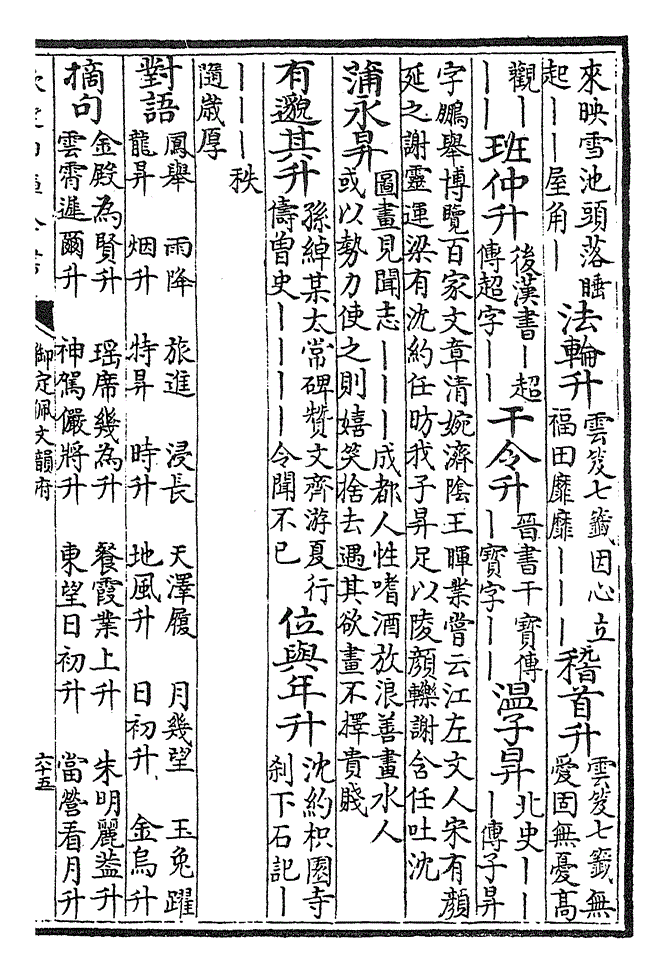 來映雪池頭落睡
起——屋角—
法輪升
雲笈七籤因心立
福田靡靡———
稽首升
雲笈七籤無
愛固無憂高
觀—
——
班仲升
後漢書—超
傳超字——
干令升
晉書干寶傳
—寶字——
温子昇
北史——
—傳子昇
字鵬舉博覽百家文章清婉濟陰王暉業嘗云江左文人宋有顏
延之謝靈運梁有沈約任昉我子昇足以陵顏轢謝含任吐沈
蒲永昇
圖畫見聞志———成都人性嗜酒放浪善畫水人
或以勢力使之則嬉笑捨去遇其欲畫不擇貴賤
有邈其升
孫綽某太常碑贊文齊游夏行
儔曾史————令聞不已
位與年升
沈約枳園寺
刹下石記—
———秩
隨歲厚
對語
鳳舉 雨降 旅進 浸長 天澤履 月幾望 玉兔躍
龍昇 烟升 特昇 時升 地風升 日初升 金烏升
摘句
金殿為賢升 瑶席幾為升 餐霞業上升 朱明麗益升
雲霄進爾升 神駕儼將升 東望日初升 當營看月升
御定佩文韻府
六十五